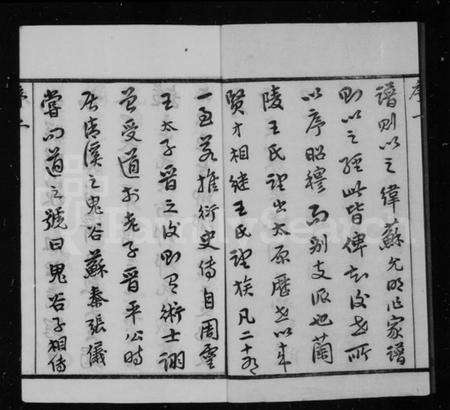 譜則以之緯蘇允明作家譜
則以之經此皆俾知後世所
以序昭穆而別支派也蘭
陵王氏望出太原歷世以來
賢才相繼王氏望族凡二十有
一至若推衍史傳自周靈
王太子晋之後則有術士詡
曾受道於老子晋平公時
居清溪之鬼谷蘇秦張儀
嘗問道之號曰鬼谷子相傳
FamilySearch